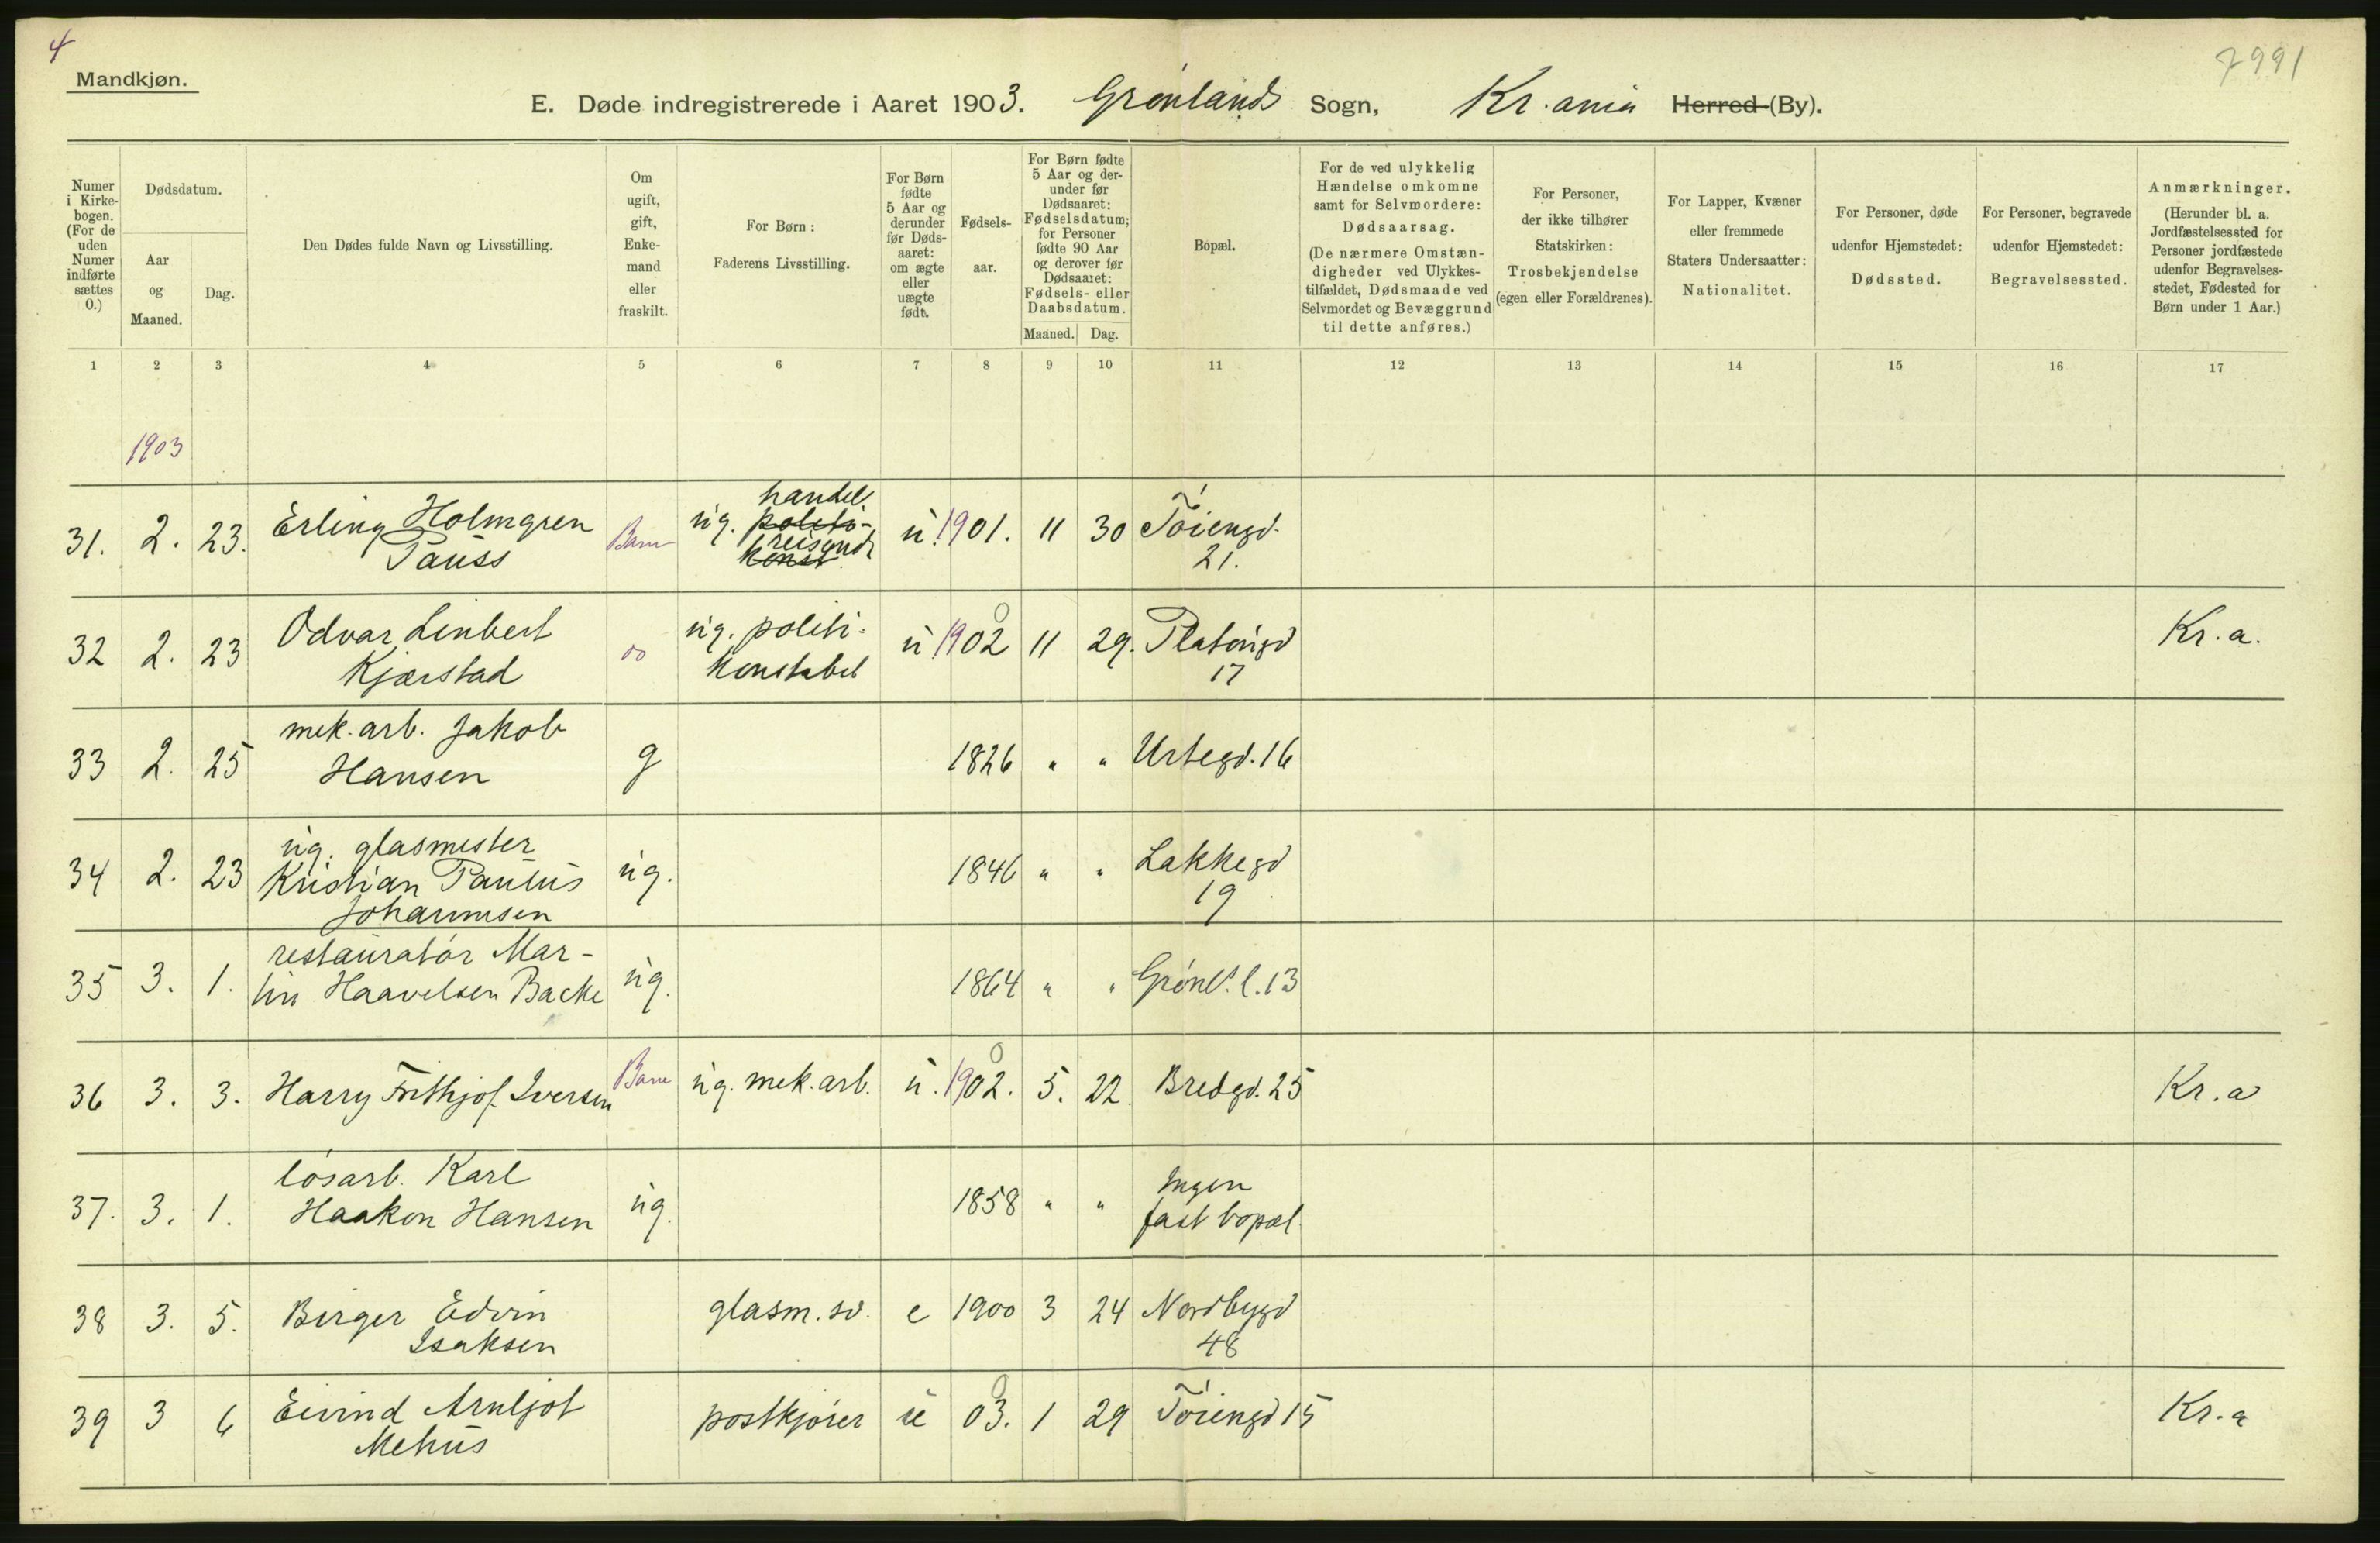 4
7991
Mandkjøn.
E. Døde indregistrerede i Aaret 1903. Grønlands Sogn, Kr.ania Herred (By).
Numer i Kirkebogen. (For de uden Numer indførte sættes 0.)
Dødsdatum.
Aar og Maaned.
Dag.
Den Dødes fulde Navn og Livsstilling.
Om ugift, gift, Enkemand eller fraskilt.
For Børn: Faderens Livsstilling.
For Børn fødte 5 Aar og derunder før Dødsaaret: om ægte eller uægte født.
Fødselsaar.
For Børn fødte 5 Aar og derunder før Dødsaaret: Fødselsdatum; for Personer fødte 90 Aar og derover før Dødsaaret: Fødsels- eller Daabsdatum.
Maaned. Dag.
Bopæl.
For de ved ulykkelig Hændelse omkomne samt for Selvmordere: Dødsaarsag. (De nærmere Omstændigheder ved Ulykkestilfældet, Dødsmaade ved Selvmordet og Bevæggrund til dette anføres.)
For Personer, der ikke tilhører Statskirken: Trosbekjendelse (egen eller Forældrenes).
For Lapper, Kvæner eller fremmede Staters Undersaatter: Nationalitet.
For Personer, døde udenfor Hjemstedet: Dødssted.
For Personer, begravede udenfor Hjemstedet: Begravelsessted.
Anmærkninger. (Herunder bl. a. Jordfæstelsessted for Personer jordfæstede udenfor Begravelsesstedet, Fødested for Børn under 1 Aar.)
1 2 3 4 5 6 7 8 9 10 11 12 13 14 15 16 17
1903
31. 2. 23. Erling Holmgren Pauss Barn ug. handels politi- reisende konst. u. 1901. 11 30 Tøiengd. 21.
32 2. 23 Odvar Linbert Kjærstad do ug. politi- konstabel u. 1902 11 29. Platougd 17 Kr.a.
33 2. 25 mek. arb. Jakob Hansen g 1826 " " Urtegd. 16
34 2. 23 ug. glasmester Kristian Paulus Johannesen ug. 1846 " " Lakkegd 19
35 3. 1. restauratør Mar- tin Haavelsen Backe ug. 1864 " " Grønl. l. 13
36 3. 3. Harry Frithjof Iversen Barn ug. mek. arb. u. 1902. 5. 22 Bredgd. 25 Kr.a
37. 3. 1. løsarb. Karl Haakon Hansen ug. 1858 " " Ingen fast bopæl
38 3. 5. Birger Edvin Isaksen glasm. sv. e 1900 3 24 Nordbygd 48
39 3 6 Eivind Arnljot Mehus postkjører ue 03. 1 29 Tøiengd 15 Kr.a